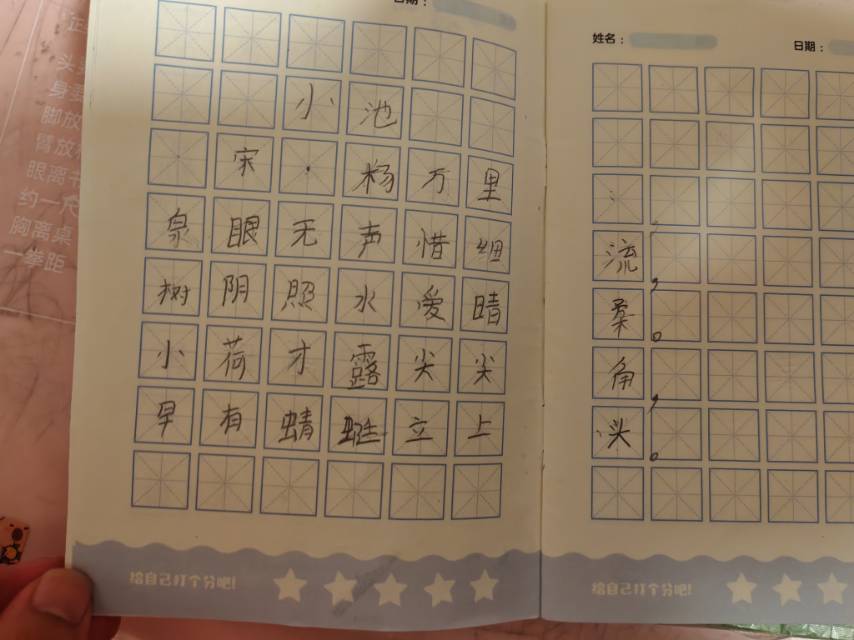 日期：
小池
宋·杨万里
泉眼无声惜细流，
树阴照水爱晴柔。
小荷才露尖尖角，
早有蜻蜓立上头。
给自己打个分吧！
姓名： 日期：
给自己打个分吧！
眼离书
约一尺
胸离桌
一拳距